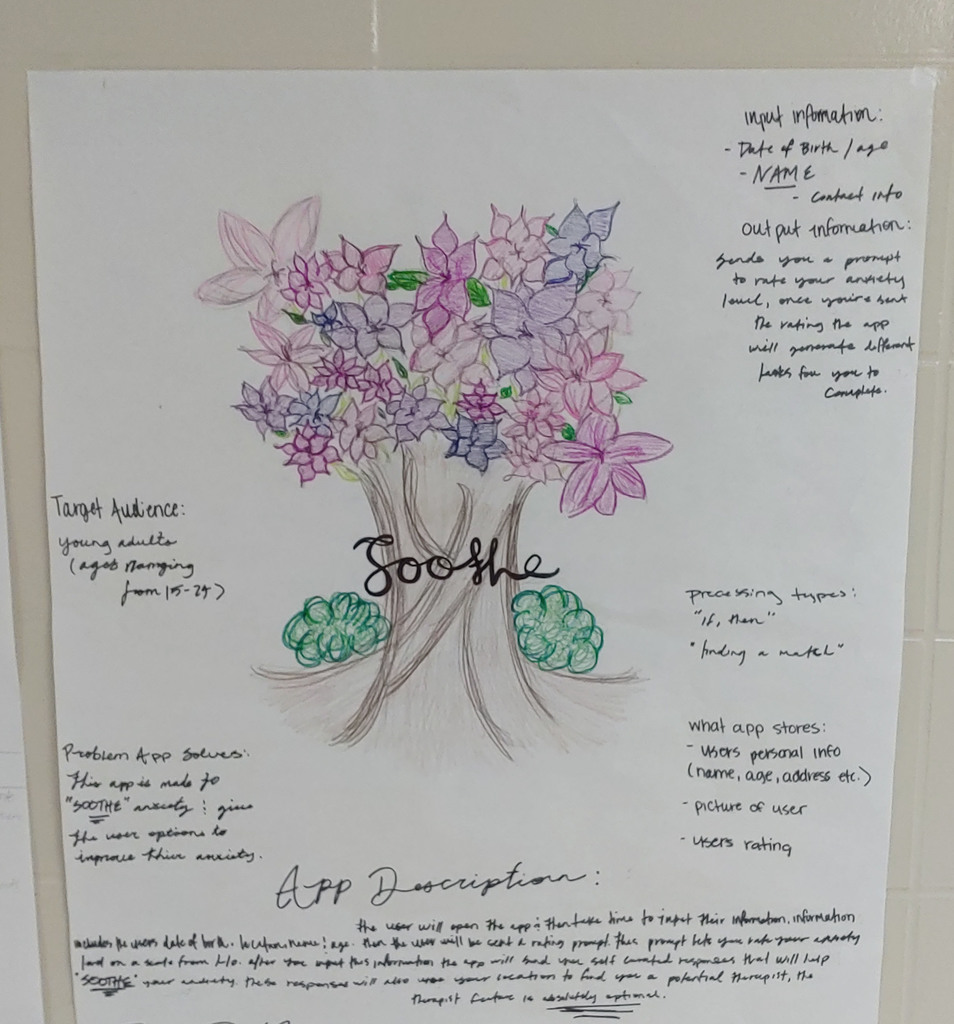 input information:
- Date of Birth / age
- NAME
- Contact info
Output information:
Sends you a prompt
to rate your anxiety
level, once you're sent
the rating the app
will generate different
tasks for you to
Complete.
Target Audience:
young adults
(ages
from 15-25)
Soothe
processing types:
"if, then"
"finding a match"
what app stores:
- users personal info
(name, age, address etc.)
- picture of user
- users rating
Problem App Solves:
This app is made to
"SOOTHE" anxiety & gives
the user options to
improve thier anxiety.
App Description:
the user will open the app & then take time to input their information, information
includes the users date of birth, location, name & age. then the user will be sent a rating prompt. This prompt lets you rate your anxiety
level on a scale from 1-10. after you input this information the app will send you self curated responses that will help
"SOOTHE" your anxiety. these responses will also use your location to find you a potential therapist, the
therapist feature is absolutely optional.